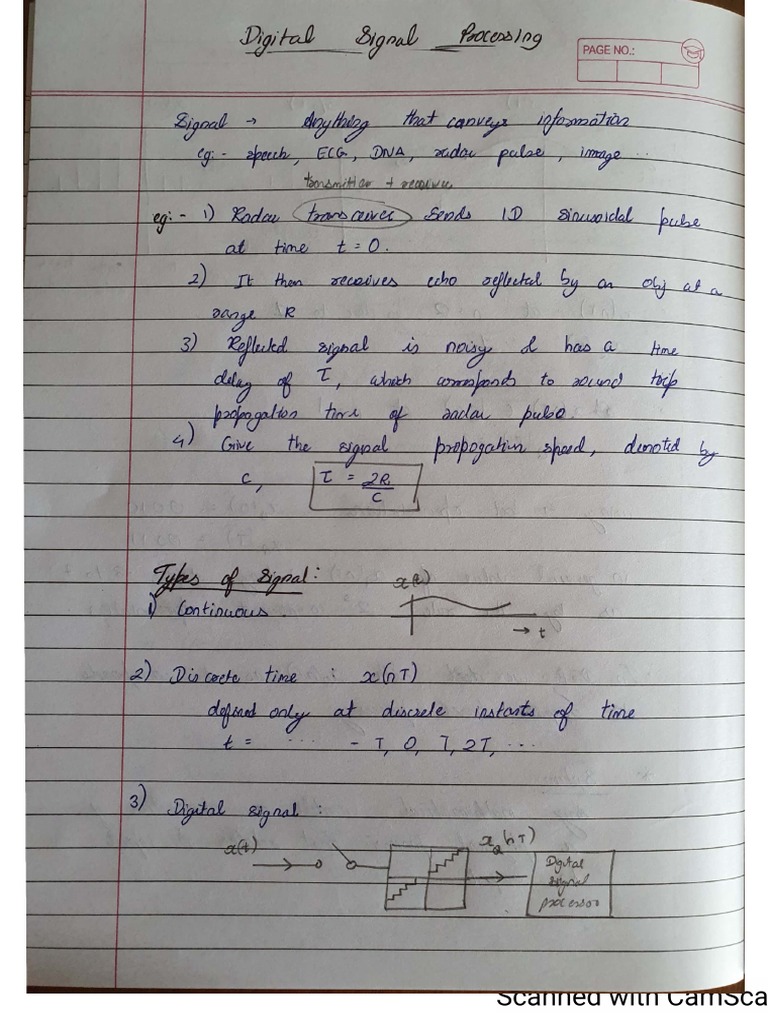 Digital Signal Processing
PAGE NO.:
Signal → Anything that conveys information
eg:- speech, ECG, DNA, radar pulse, image ...
transmitter + receiver
eg:- 1) Radar transceiver sends 1D sinusoidal pulse
at time t = 0.
2) It then receives echo reflected by an obj at a
range R
3) Reflected signal is noisy & has a time
delay of τ, which corresponds to round trip
propagation time of radar pulse.
4) Give the signal propogation speed, denoted by
c, τ = 2R/C
Types of Signal:
x(t)
1) Continuous.
→ t
2) Discrete time : x(nT)
defined only at discrete instants of time
t = ... -T, 0, T, 2T, ...
3) Digital signal :
x(t) x_Q(nT)
Digital
signal
processor
Scanned with CamSca